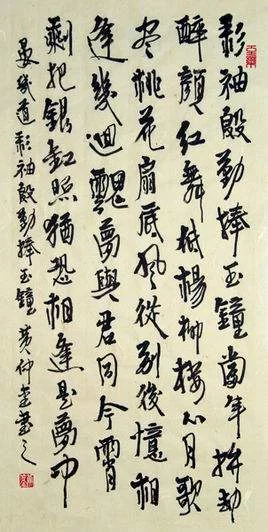 彩袖殷勤捧玉鐘當年拚却
醉顏紅舞低楊柳樓心月歌
盡桃花扇底風從別後憶相
逢幾迴魂夢與君同今宵
剩把銀釭照猶恐相逢是夢中
晏幾道彩袖殷勤捧玉鐘 黄仲書之